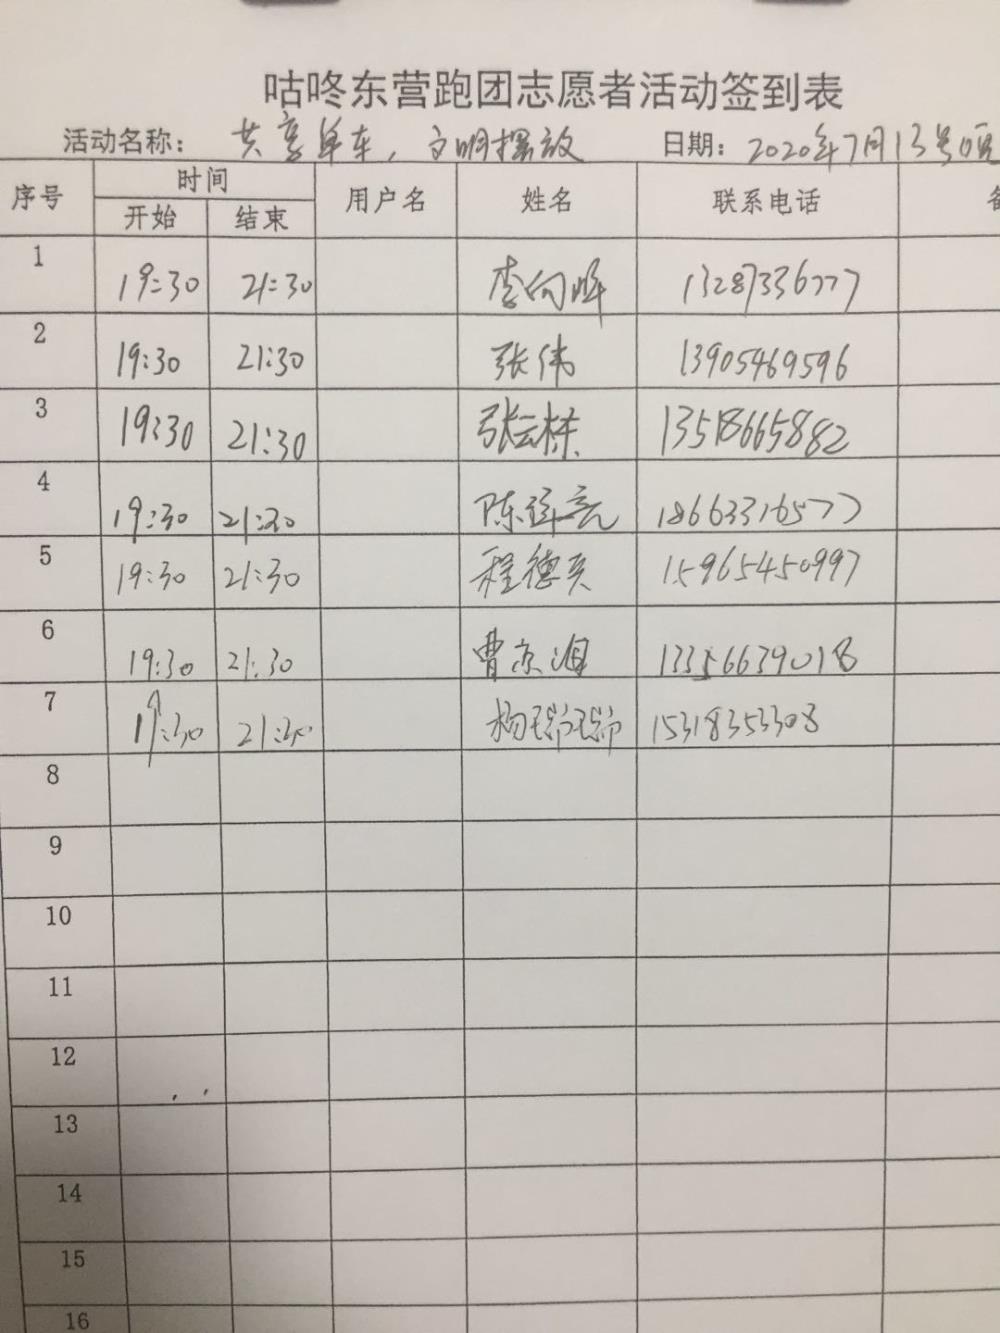 咕咚东营跑团志愿者活动签到表
活动名称： 共享单车，文明摆放 日期： 2020年7月13号
序号 时间 用户名 姓名 联系电话
开始 结束
1 19:30 21:30 李向晖 13287336777
2 19:30 21:30 张伟 13905469596
3 19:30 21:30 张云栋 13518665882
4 19:30 21:30 陈 亮 18663316577
5 19:30 21:30 程德 15965450997
6 19:30 21:30 曹京 13356639018
7 19:30 21:30 杨 15318353308
8
9
10
11
12
13
14
15
16